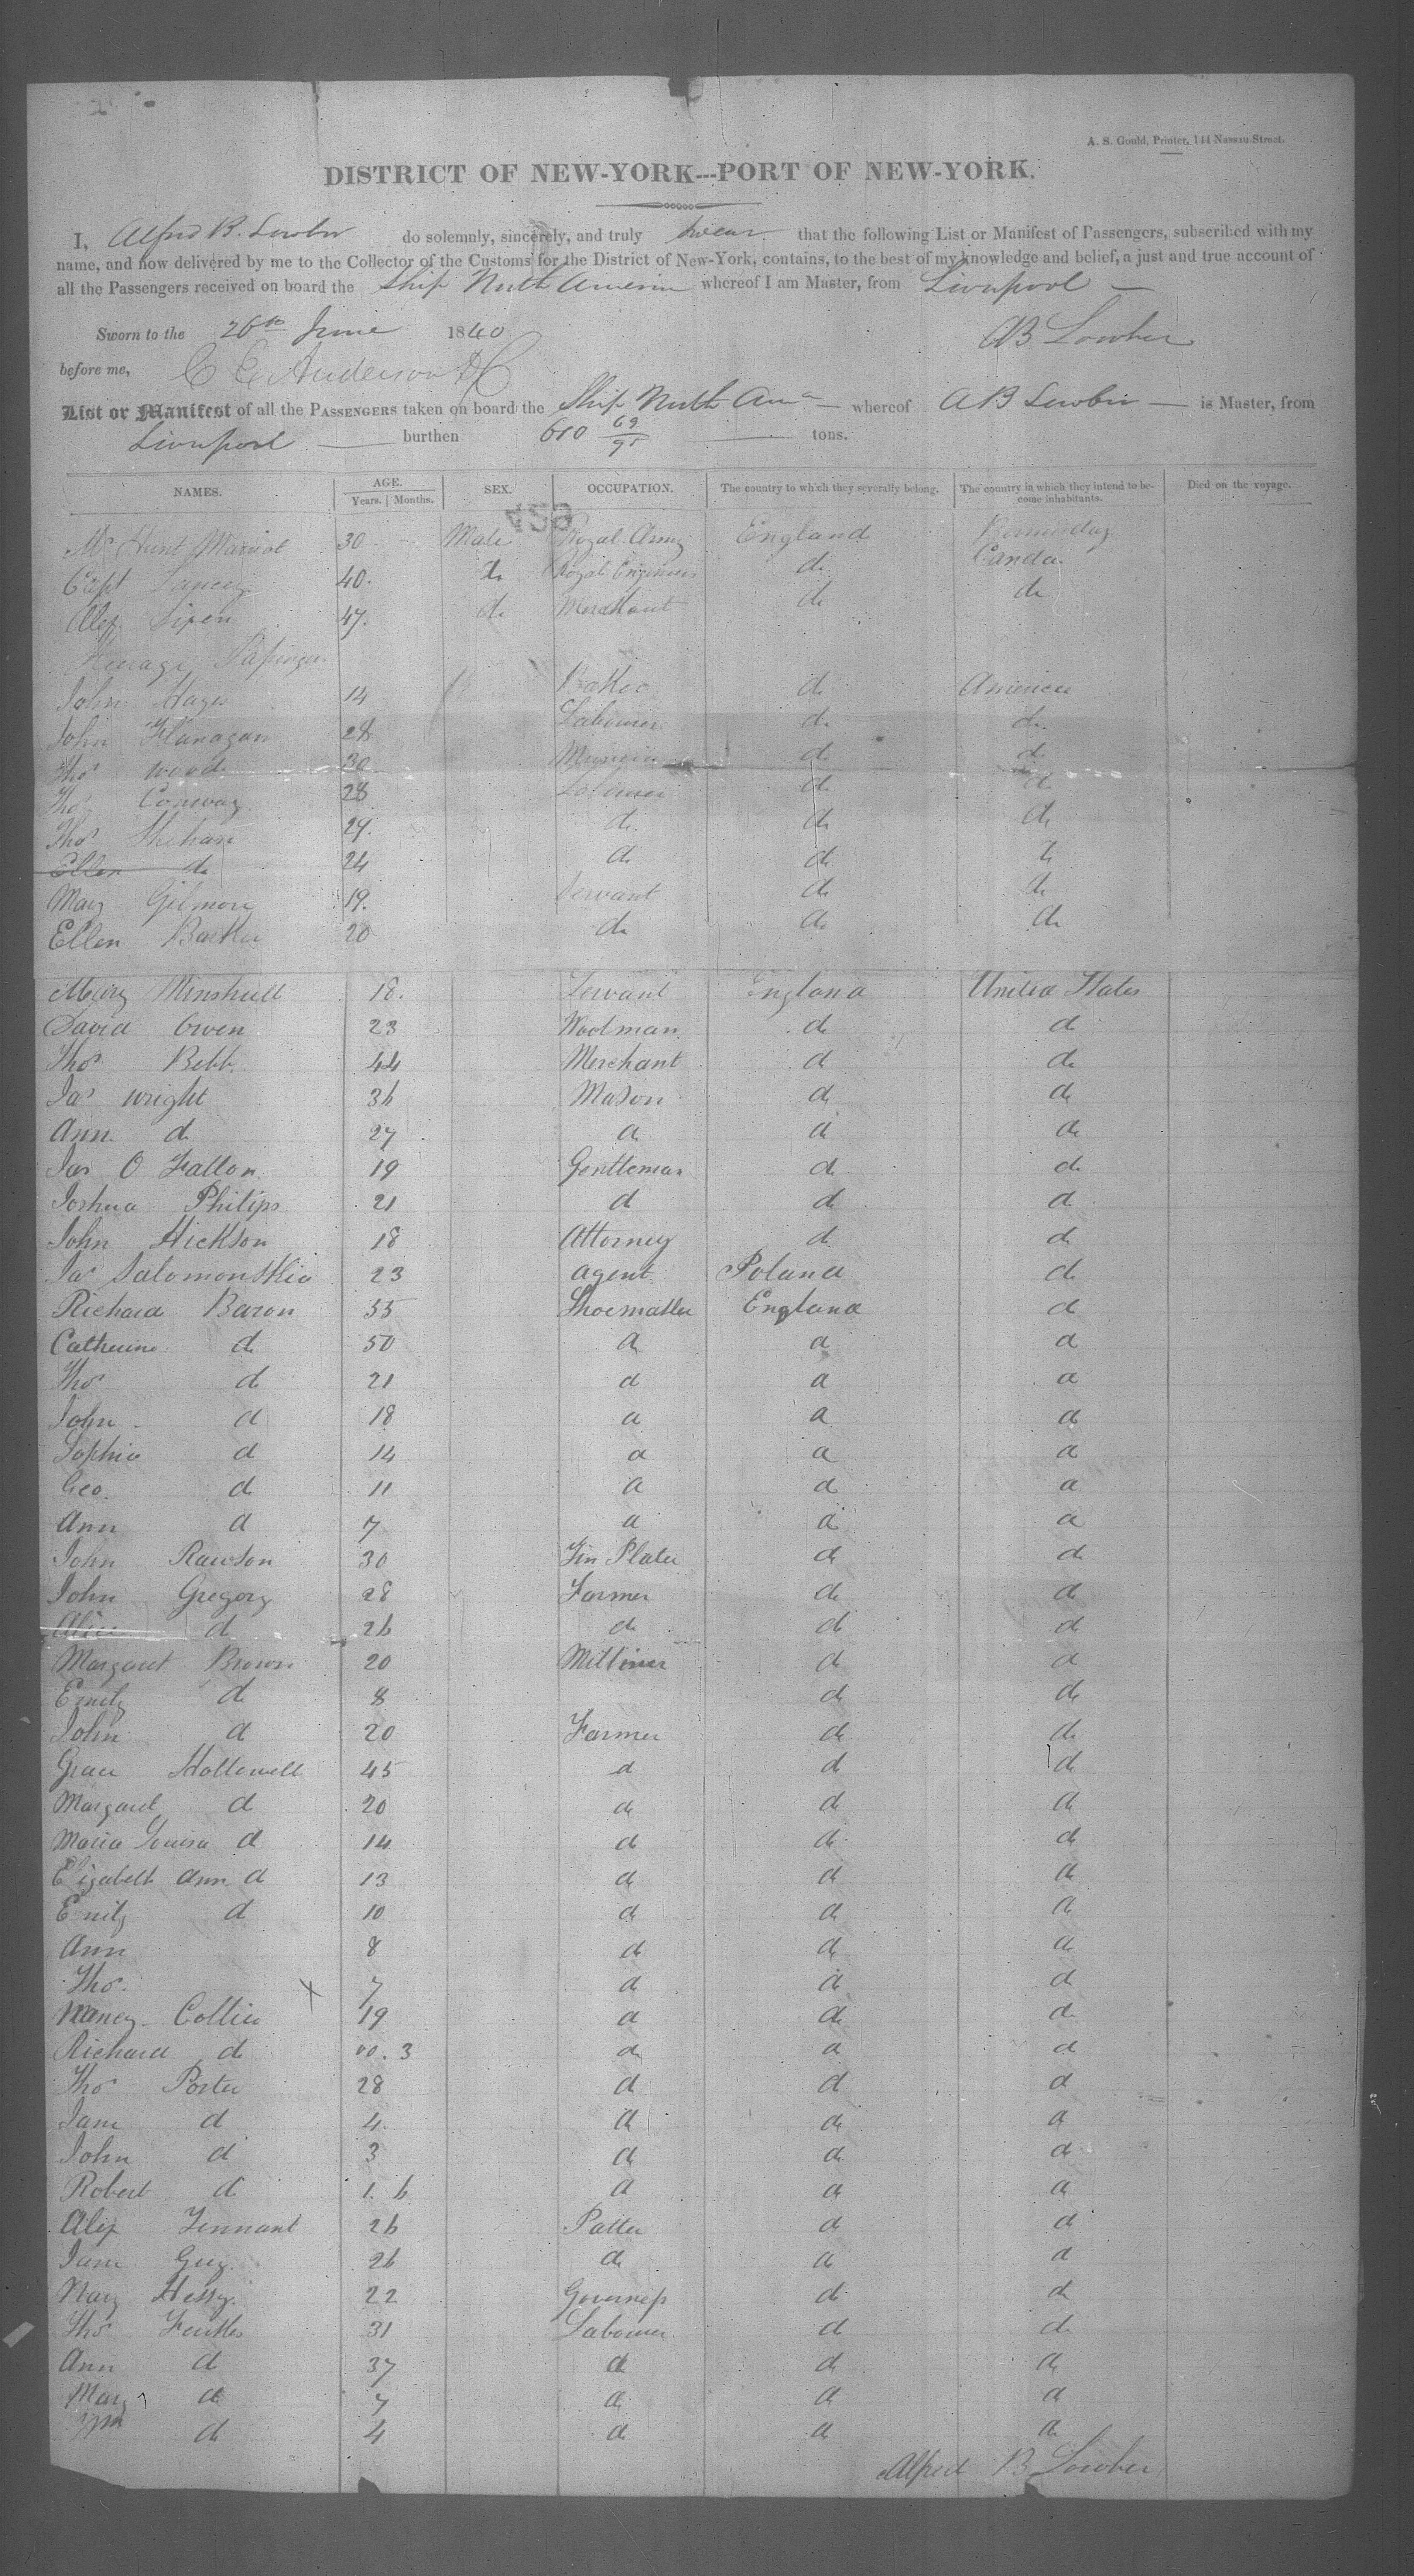 A. S. Gould, Printer, 144 Nassau Street.
DISTRICT OF NEW-YORK---PORT OF NEW-YORK.
I, Alfred B. Lowber do solemnly, sincerely, and truly swear that the following List or Manifest of Passengers, subscribed with my
name, and now delivered by me to the Collector of the Customs for the District of New-York, contains, to the best of my knowledge and belief, a just and true account of
all the Passengers received on board the Ship North America whereof I am Master, from Liverpool
Sworn to the 26th June 1840 AB Lowber
before me, Anderson
List or Manifest of all the PASSENGERS taken on board the Ship North Ama whereof A B Lowber is Master, from
Liverpool burthen 610 69/95 tons.
NAMES. AGE. Years. Months. SEX. OCCUPATION. The country to which they severally belong. The country in which they intend to become inhabitants. Died on the voyage.
Mr Hunt 30 Male Royal Army England
Capt 40. do Royal Engineers do Canda.
Alex 47. do Merchant do do
Steerage Passengers
John Hayes 14 do America
John Flanagan 28 Labourer do do
Thos Wood 30 do do
Thos Conway 28 Labourer do do
Thos Shehan 27. do do do
Ellen do 24 do do do
Mary Gilmore 19. Servant do do
Ellen 20 do do do
Mary Minshull 18. Servant England United States
David Owen 23 Woolman d d
Thos Bebb 44 Merchant d do
Jas Wright 36 Mason d do
Ann d 27 d d do
Jas O Fallon 19 Gentleman d d
Joshua Philips 21 d d d
John Hickson 18 Attorney d d
Jas Salomonskio 23 Agent Poland d
Richard Baron 55 Shoemaker England d
Catherine d 50 d d d
Thos d 21 d d d
John d 18 d d d
Sophia d 14 d d d
Geo. d 11 d d d
Ann d 7 d d d
John Rawson 30 Tin Plater d d
John Gregory 28 Farmer do do
Alice d 26 d d d
Margaret Brown 20 Milliner d d
Emily d 8 do do
John d 20 Farmer do do
Grace Hollowell 45 d d d
Margaret d 20 do d do
Maria Louisa d 14 do do do
Elizabeth Ann d 13 d d d
Emily d 10 d d d
Ann 8 do do d
Thos. 7 d d d
Nancy Collier 19 d do d
Richard d 00. 3 d d d
Thos Porter 28 d d d
Jane d 4 d do d
John d 3 d d d
Robert d 1. 6 d d d
Alex Tennant 26 Potter d d
Jane 26 do d d
Mary 22 Governess do do
Thos 31 Labourer d d
Ann d 37 d d d
Mary d 7 d d d
Wm d 4 d d d
Alfred B Lowber